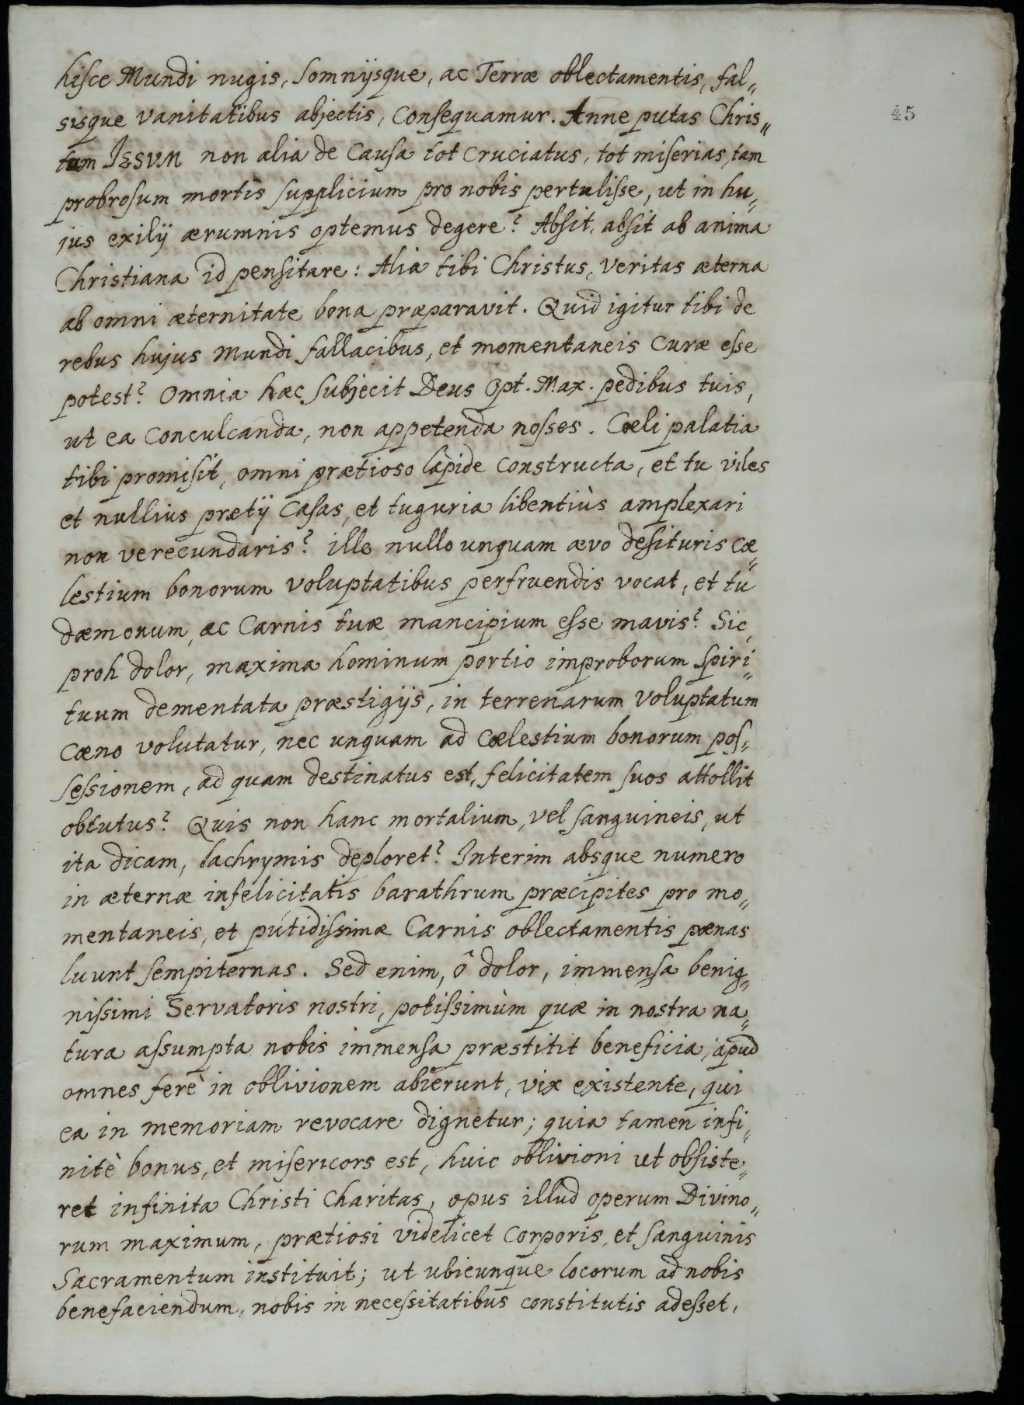 hisce Mundi nugis, somnijsque, ac Terræ oblectamentis, fal„
sisque vanitatibus abjectis, consequamur. Anne putas Chris„
tum IESUM non alia de causa tot cruciatus, tot miserias, tam
probrosum mortis supplicium pro nobis pertulisse, ut in hu„
jus exilij ærumnis optemus degere? Absit, absit ab anima
Christiana id pensitare: Alia tibi Christus, veritas æterna
ab omni æternitate bona præparavit. Quid igitur tibi de
rebus hujus Mundi fallacibus, et momentaneis curæ esse
potest? Omnia hæc subjecit Deus Opt. Max. pedibus tuis,
ut ea conculcanda, non appetenda nosses. Cœli palatia
tibi promisit, omni prætioso lapide constructa, et tu viles
et nullius prætij casas, et tuguria libentiùs amplexari
non verecundaris? ille nullo unquam ævo desituris cæ„
lestium bonorum voluptatibus perfruendis vocat, et tu
dæmonum, ac Carnis tuæ mancipium esse mavis? Sic,
proh dolor, maxima hominum portio improborum spiri„
tuum dementata præstigijs, in terrenarum voluptatum
cæno volutatur, nec unquam ad cœlestium bonorum pos„
sessionem, ad quam destinatus est, felicitatem suos attollit
obtutus? Quis non hanc mortalium, vel sanguineis, ut
ita dicam, lachrymis deploret? Interim absque numero
in æternæ infelicitatis barathrum præcipites pro mo„
mentaneis, et putidissimæ Carnis oblectamentis pænas
luunt sempiternas. Sed enim, ô dolor, immensa benig„
nissimi Servatoris nostri, potissimùm quæ in nostra na„
tura assumpta nobis immensa præstitit beneficia, apud
omnes ferè in oblivionem abierunt, vix existente, qui
ea in memoriam revocare dignetur; quia tamen infi„
nitè bonus, et misericors est, huic oblivioni ut obsiste„
ret infinita Christi Charitas, opus illud operum Divino„
rum maximum, prætiosi videlicet Corporis, et Sanguinis
Sacramentum instituit; ut ubicunque locorum ad nobis
benefaciendum, nobis in necessitatibus constitutis adesset,
45